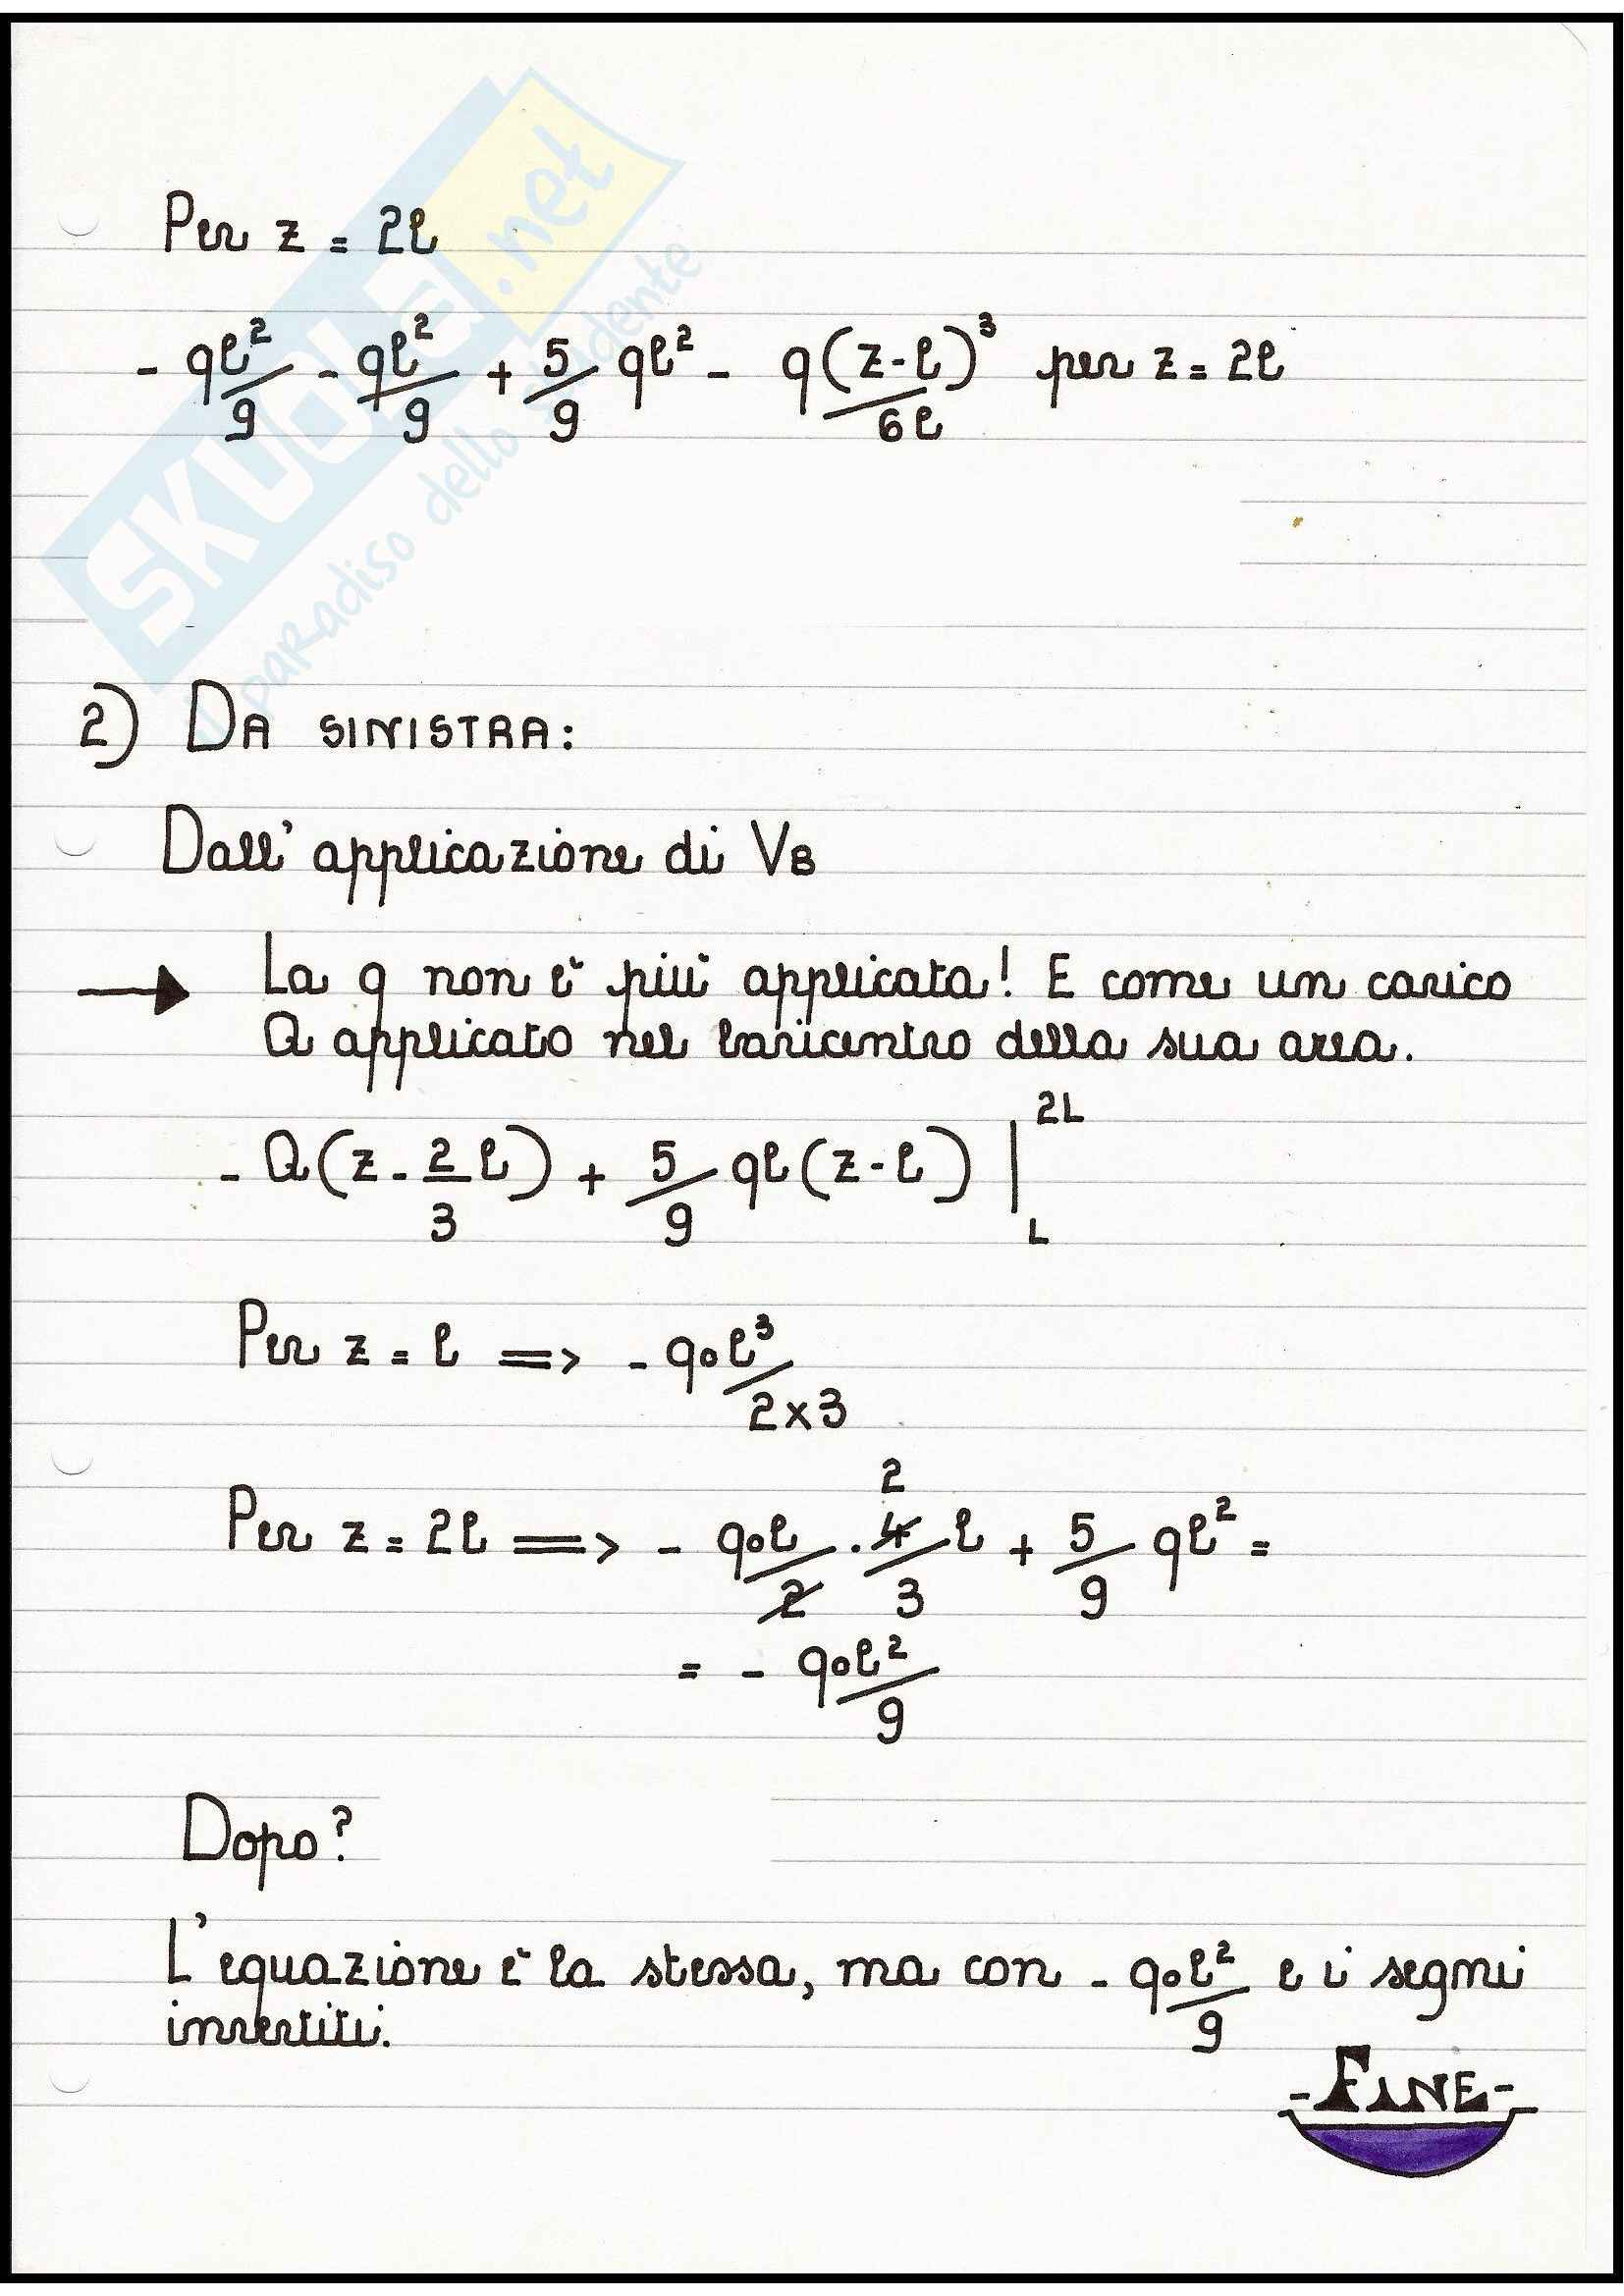 SKUOLA.net
il paradiso dello studente
Per z = 2l
- ql²/9 - ql²/9 + 5/9 ql² - q(z-l)³/6l per z = 2l
2) DA SINISTRA:
Dall' applicazione di VB
→ La q non è più applicata! E come un carico
Q applicato nel baricentro della sua area.
- Q(z - 2/3 l) + 5/9 ql(z-l) |_L^2L
Per z = l => - q₀l³/2x3
Per z = 2l => - q₀l/2 · 4/3 l + 5/9 ql² =
2
= - q₀l²/9
Dopo?
L'equazione è la stessa, ma con - q₀l²/9 e i segni
invertiti.
- FINE -